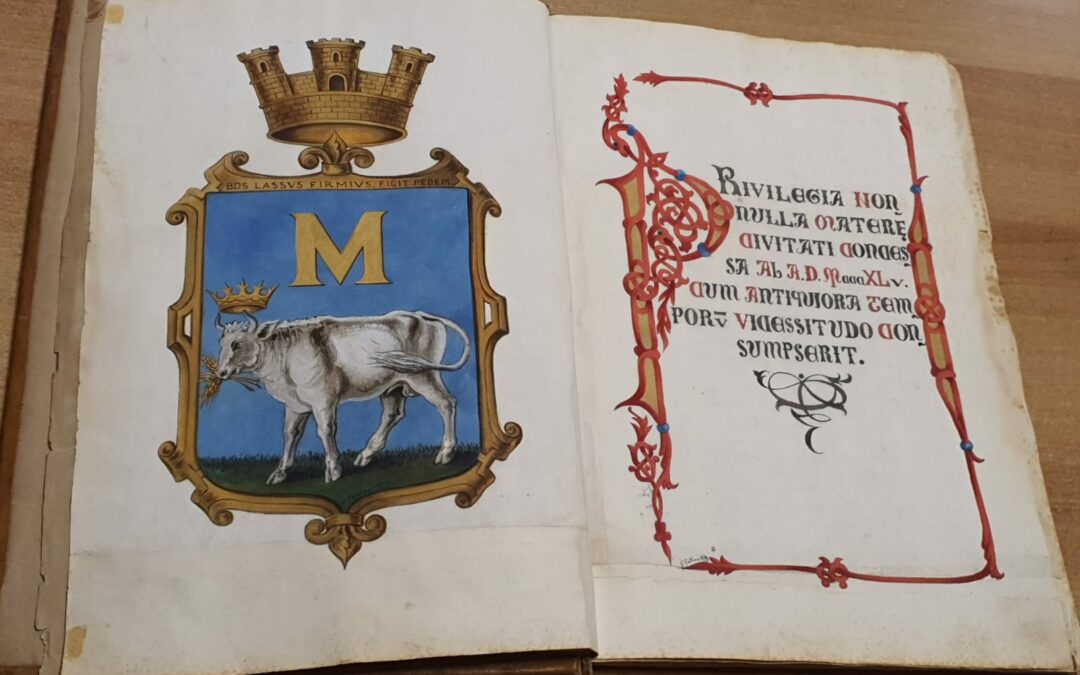 BOS LASSVS FIRMIVS, FIGIT PEDEM
M
PRIVILEGIA NON
NULLA MATERĘ
CIVITATI CONCES
SA AL A.D. MCCCCXLV.
CUM ANTIQUIORA TEM
PORV̄ VICESSITUDO CON
SUMPSERIT.